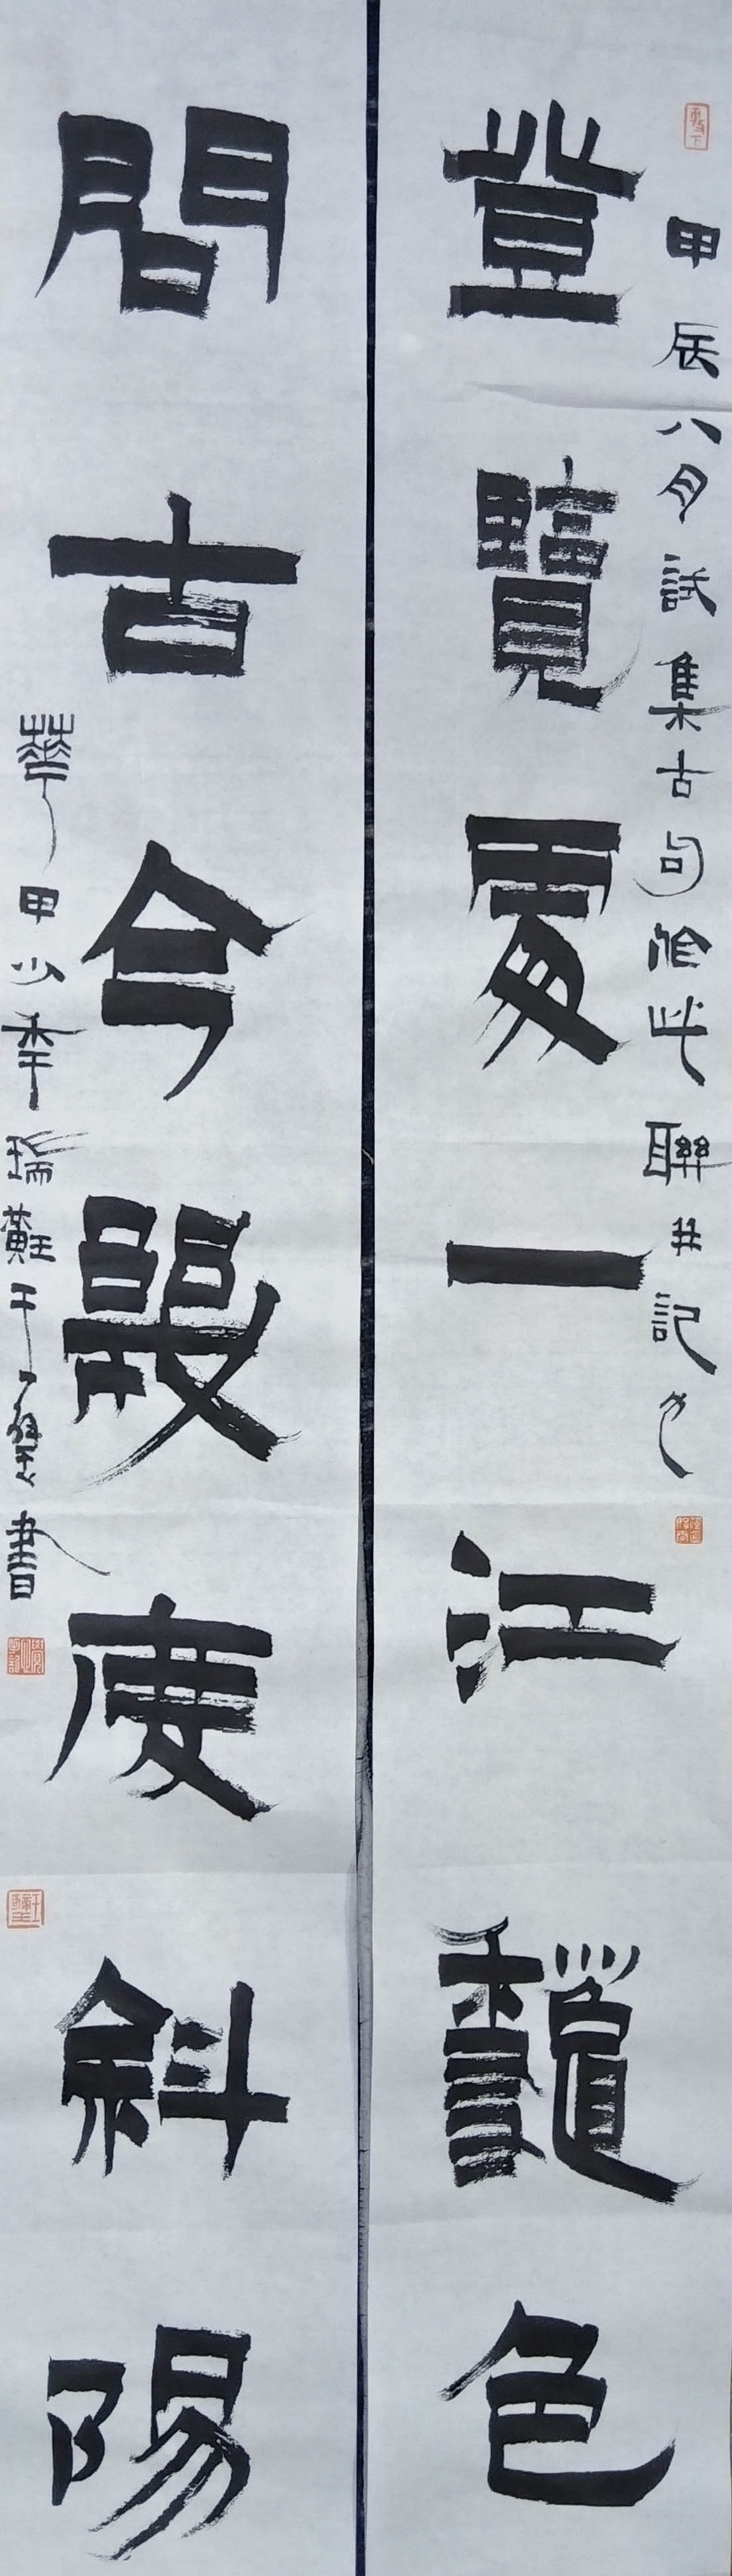 甲辰八月試集古句作此聯并記之
登覽處一江龝色
問古今幾度斜陽
華甲少年瑞書